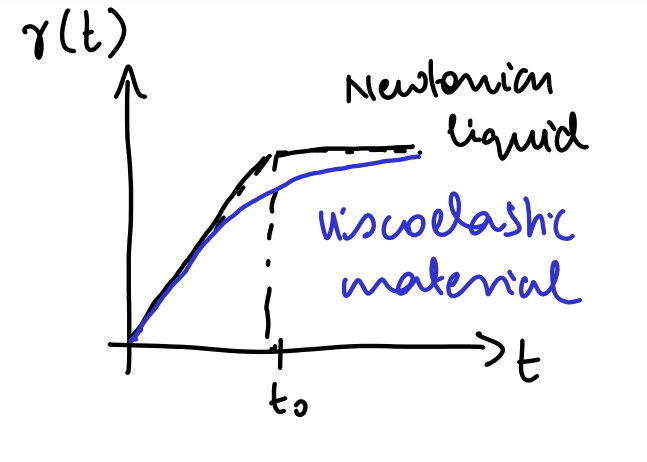 γ(t)
Newtonian
liquid
viscoelastic
material
t
t₀